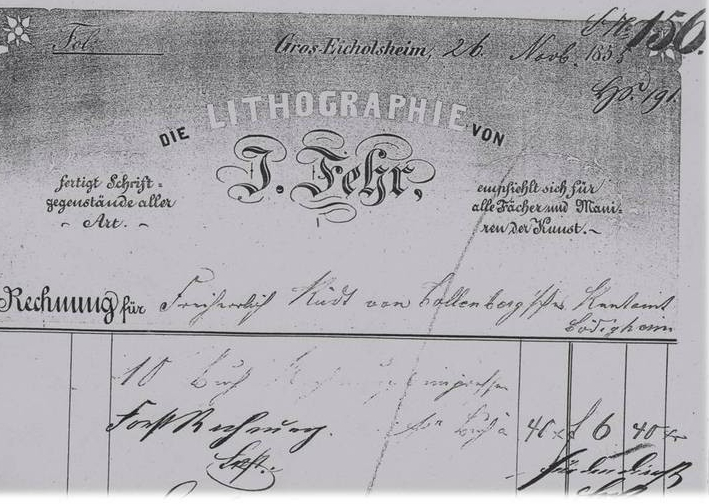 Fol
Gros-Eicholsheim, 26. Novb. 185
156.
191.
DIE LITHOGRAPHIE VON
J. Fehr,
fertigt Schrift-
gegenstände aller
~ Art. ~
empfiehlt sich für
alle Fächer und Mani-
ren der Kunst. ~
Rechnung für Freiherrlich Rüdt von Collenberg'sches Rentamt
Bödigheim
10 Buch
Forst Rechnung. Buch à 40 x f 6 40 xr
für den Dienst